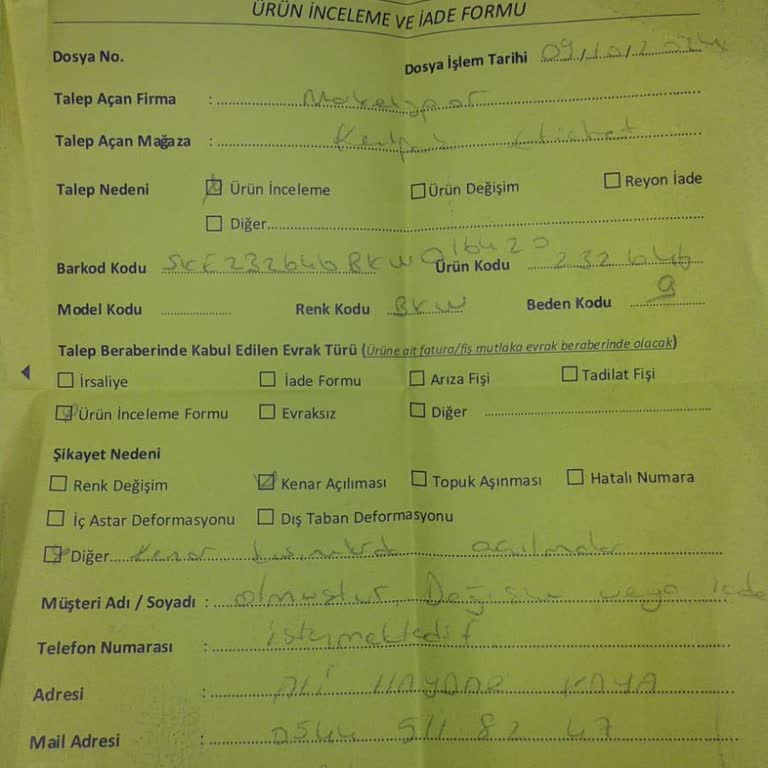 ÜRÜN İNCELEME VE İADE FORMU
Dosya No. Dosya İşlem Tarihi 09/10/2024
Talep Açan Firma :
Talep Açan Mağaza :
Talep Nedeni ☒ Ürün İnceleme ☐ Ürün Değişim ☐ Reyon İade
☐ Diğer
Barkod Kodu SKE232646BKW Ürün Kodu 232646
Model Kodu Renk Kodu BKW Beden Kodu 9
Talep Beraberinde Kabul Edilen Evrak Türü (Ürüne ait fatura/fiş mutlaka evrak beraberinde olacak)
☐ İrsaliye ☐ İade Formu ☐ Arıza Fişi ☐ Tadilat Fişi
☒ Ürün İnceleme Formu ☐ Evraksız ☐ Diğer
Şikayet Nedeni
☐ Renk Değişim ☒ Kenar Açılıması ☐ Topuk Aşınması ☐ Hatalı Numara
☐ İç Astar Deformasyonu ☐ Dış Taban Deformasyonu
☒ Diğer kenar kısımlarda açılmalar
Müşteri Adı / Soyadı : olmuştur. Değişim veya iade
Telefon Numarası : istemektedir
Adresi : ALİ HAYDAR KAYA
Mail Adresi : 0544 511 82 47